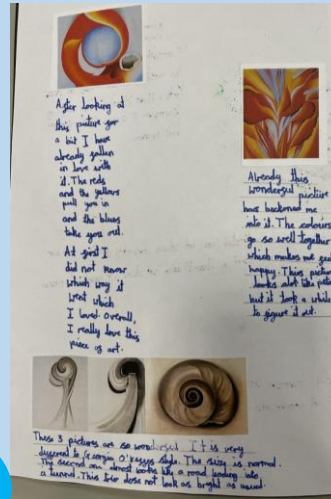 After looking at
this picture for
a bit I have
already fallen
in love with
it. The reds
and the yellows
pull you in
and the blues
take you out.
At first I
did not know
which way it
went which
I loved. Overall,
I really love this
piece of art.
Already this
wonderful picture
has beckoned me
into it. The colours
go so well together
which makes me feel
happy. This picture
looks alot like petals
but it took a while
to figure it out.
These 3 pictures are so wonderful. It is very
different to Georgia O'Keeffs style. The size is normal.
The second one almost looks like a road leading into
a tunnel. This four dose not look as bright as usual.